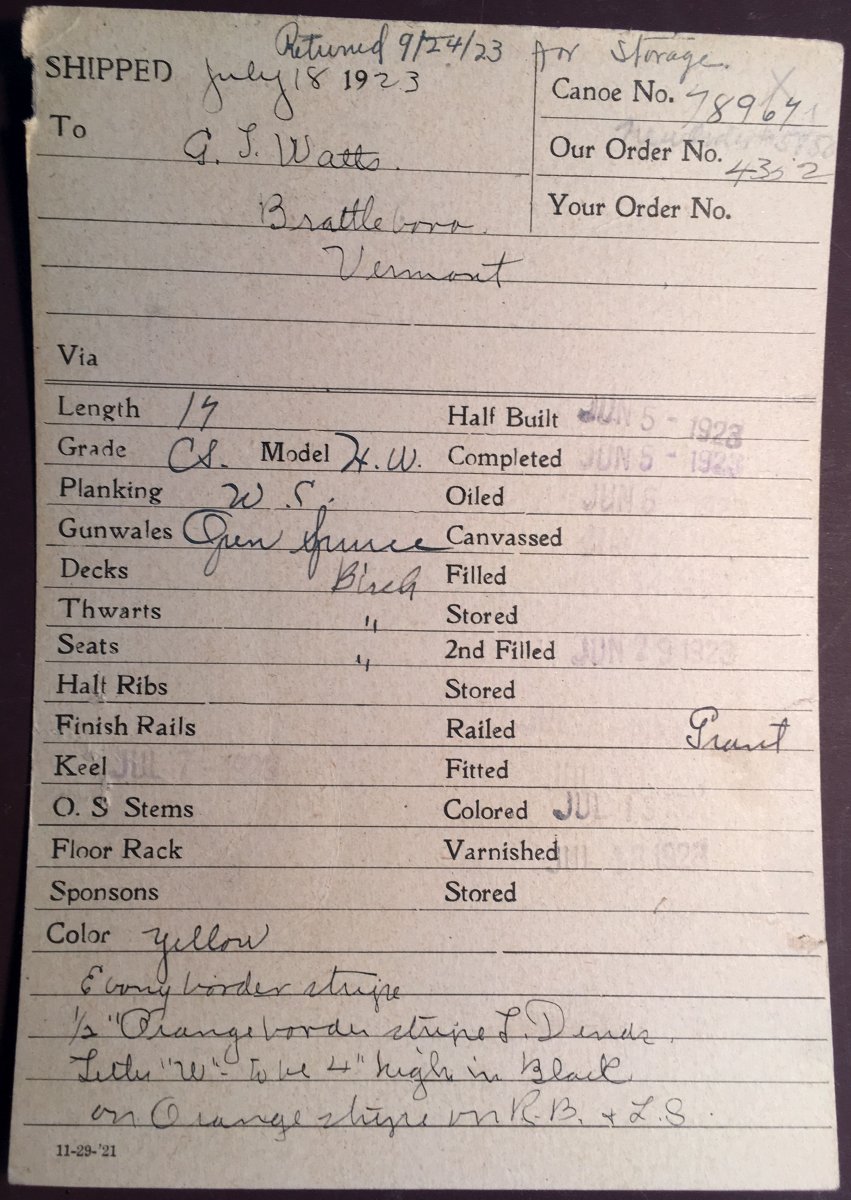 Returned 9/24/23 for Storage.
SHIPPED July 18 1923
Canoe No. 78967
To G. T. Watts.
Our Order No. 4352
Brattleboro.
Your Order No.
Vermont
Via
Length 17 Half Built JUN 5 - 1923
Grade CS. Model H.W. Completed JUN 5 - 1923
Planking W.C. Oiled JUN 6
Gunwales Open Spruce Canvassed
Decks Birch Filled
Thwarts " Stored
Seats " 2nd Filled JUN 29 1923
Half Ribs Stored
Finish Rails Railed Grant
Keel JUL 7 - 1923 Fitted
O. S Stems Colored JUL 13
Floor Rack Varnished JUL 18 1923
Sponsons Stored
Color Yellow
Ebony border stripe
1/2" Orange border stripe
Letter "W" - to be 4" high in Black
on Orange stripe on R.B. + L.S.
11-29-'21